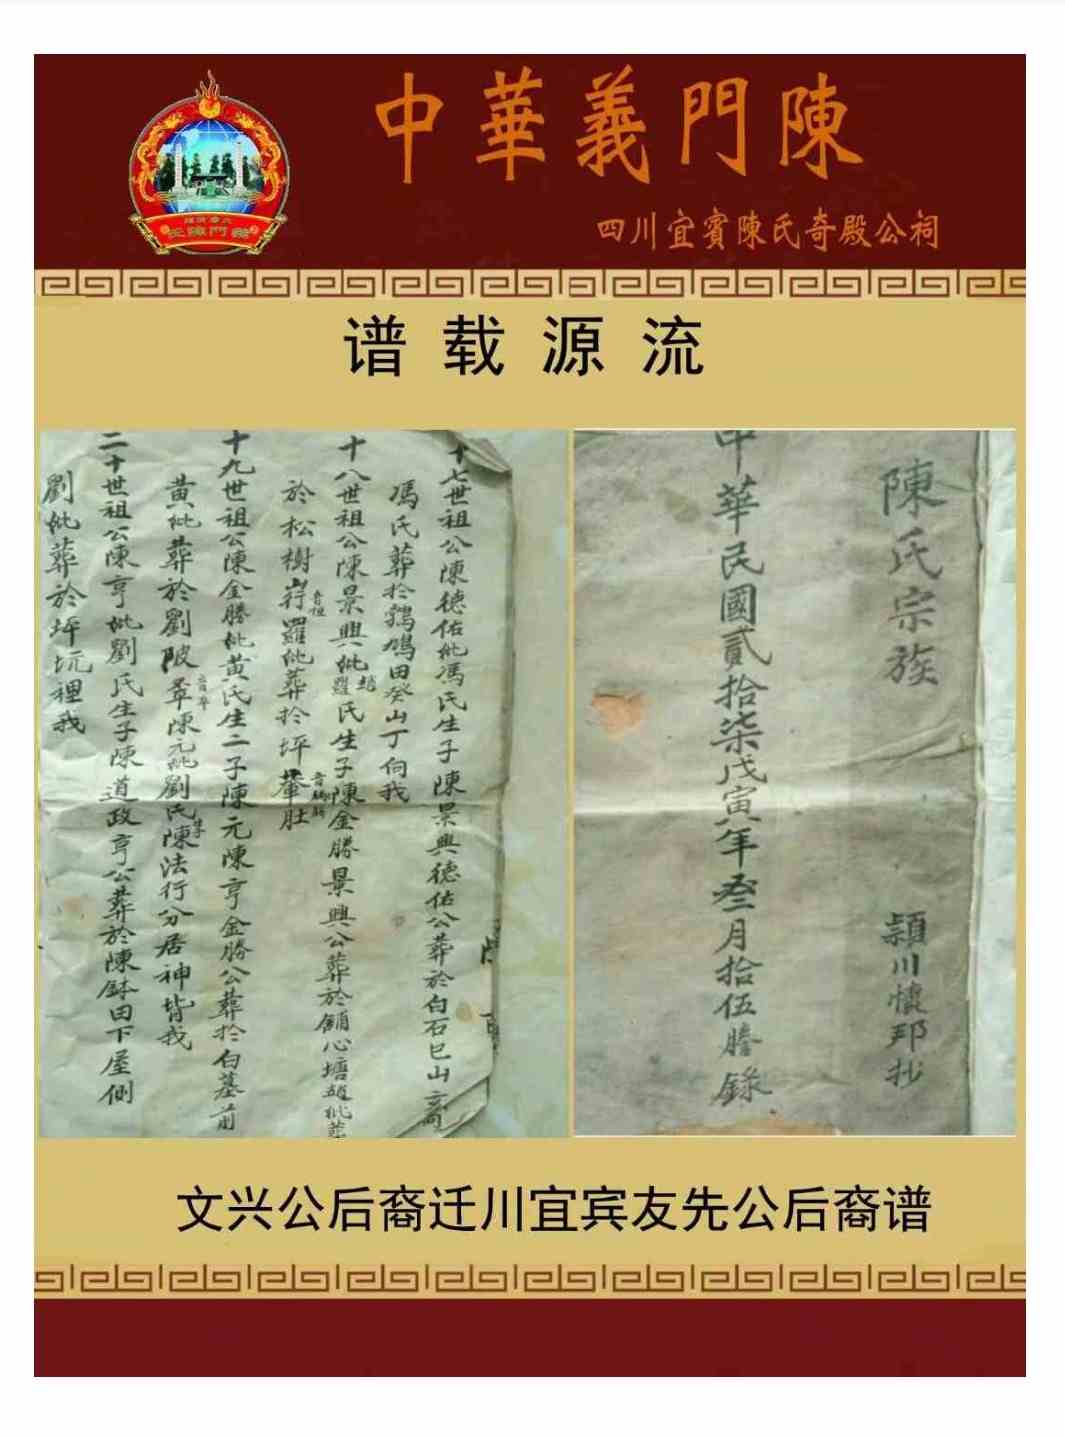 中華義門陳
四川宜賓陳氏奇殿公祠
谱载源流
陳氏宗族
頴川懷邦抄
中華民國貳拾柒戊寅年叁月拾伍謄錄
十七世祖公陳德佑妣馮氏生子陳景興德佑公葬於白石巳山
馮氏葬於鷄鳩田癸山丁向我
十八世祖公陳景興妣趙羅氏生子陳金勝景興公葬於舖心塘趙妣葬
於松樹羅妣葬於坪肚
十九世祖公陳金勝妣黄氏生二子陳元陳亨金勝公葬於白墓前
黄妣葬於劉陂陳元妣劉氏生子陳法行分居神背我
二十世祖公陳亨妣劉氏生子陳道政亨公葬於陳缽田下屋側
劉妣葬於坪坑裡我
文兴公后裔迁川宜宾友先公后裔谱